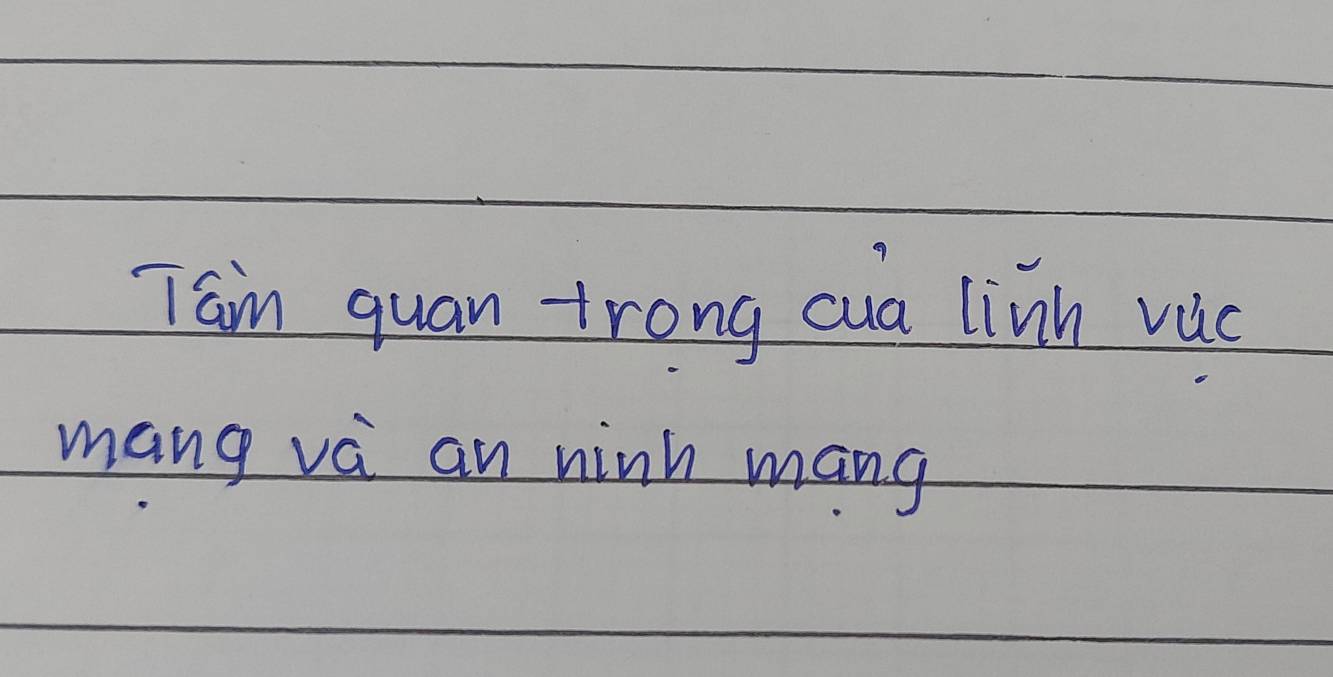 Tầm quan trọng của lĩnh vực
mạng và an ninh mạng